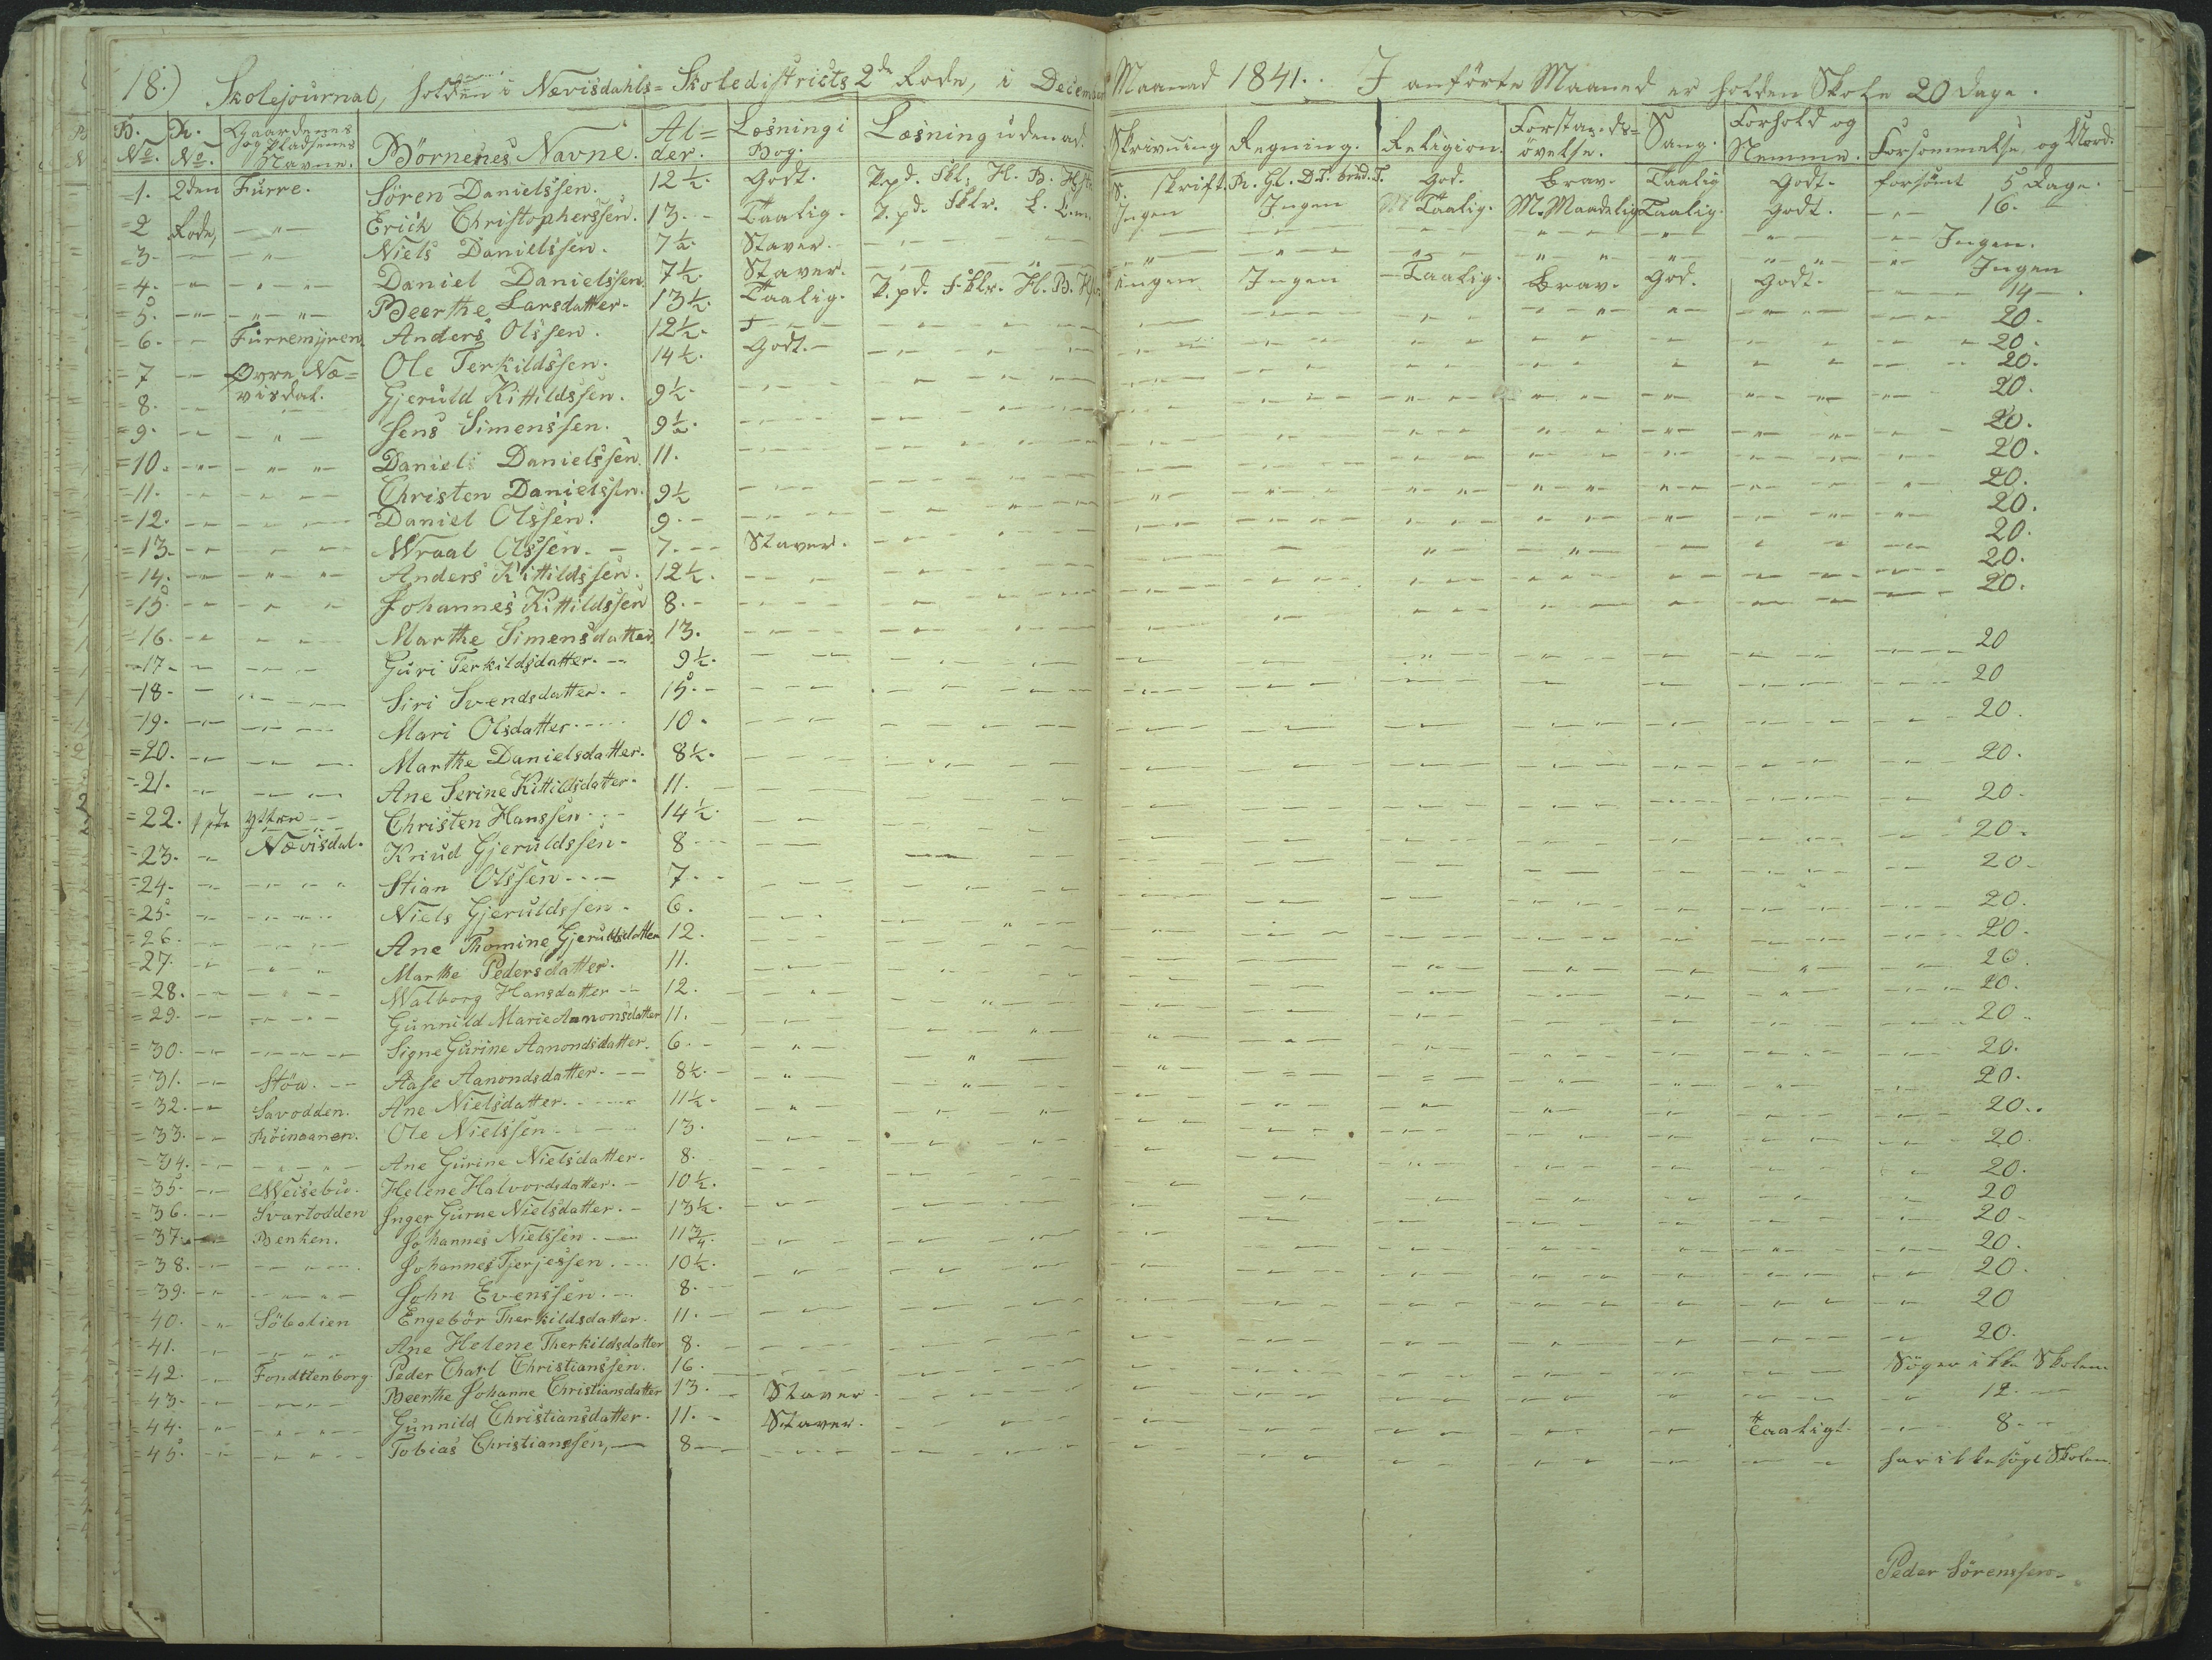 18.) Skolejournal, holden i Nævisdahls= Skoledistricts 2de Rode, i December Maaned 1841. I anførte Maaned er holden Skole 20 Dage.
B. No. R. No. Gaardenes og Pladsenes Navne. Börnenes Navne. Al=der. Læsning i Bog. Læsning udenad. Skrivning Regning. Religion. Forstands=övelse. Sang. Forhold og Nemme. Forsømmelse og Anm.
1. 2den Furre. Sören Danielssen. 12½. Godt. God. Brav. Taalig Godt. forsömt 5 Dage.
2 Rode, Erich Christopherssen. 13. Taalig. Ingen Ingen Taalig. M. Maadelig Taalig. Godt. 16.
3. Niels Danielssen. 7½. Staver. Ingen.
4. Daniel Danielssen. 7½. Staver. Ingen
5. Beerthe Larsdatter. 13½. Taalig. ingen Ingen Taalig. Brav. God. Godt. 14
6. Furremyren. Anders Olssen. 12½. 20.
7 Øvre Næ= Ole Terkildssen. 14½. Godt. 20.
8. visdal. Gjeruld Kittildssen. 9½. 20.
9. Jens Simenssen. 9½. 20.
10. Daniel Danielssen. 11. 20.
11. Christen Danielssen. 9½ 20.
12. Daniel Olssen. 9. 20.
13. Wraal Olssen. 7. Staver. 20.
14. Anders Kittildssen. 12½. 20.
15. Johannes Kittildssen 8. 20.
16. Marthe Simensdatter. 13. 20.
17. Guri Terkildsdatter. 9½. 20
18. Siri Svendsdatter. 15. 20
19. Mari Olsdatter. 10. 20.
20. Marthe Danielsdatter. 8½. 20.
21. Ane Serine Kittildsdatter. 11. 20.
22. 1ste yttre Christen Hanssen. 14½. 20.
23. Nævisdal. Knud Gjeruldssen. 8 20
24. Stian Olssen. 7. 20.
25. Niels Gjeruldssen. 6. 20.
26. Ane Thomine Gjeruldsdatter 12. 20.
27. Marthe Pedersdatter. 11. 20.
28. Walborg Hansdatter 12. 20.
29. Gunnild Marie Aamonsdatter 11. 20.
30. Signe Gurine Aanondsdatter. 6. 20.
31. Stöa. Aase Aanondsdatter. 8½. 20.
32. Savodden. Ane Nielsdatter. 11½. 20.
33. Röinaanen. Ole Nielssen. 13. 20.
34. Ane Gurine Nielsdatter. 8. 20.
35. Weisebu. Helene Halvordsdatter. 10½. 20
36. Svartodden Inger Gurne Nielsdatter. 13½. 20
37. Benken. Johannes Nielssen. 11¾. 20.
38. Johannes Tjerjessen. 10½. 20.
39. John Evenssen. 8. 20
40. Söbedien Engebör Therkildsdatter. 11. 20.
41. Ane Helene Therkildsdatter 8.
42. Fondttenborg. Peder Charl Christianssen. 16. Söger ikke Skolen.
43. Beerthe Johanne Christiansdatter 13. Staver 12.
44. Gunnild Christiansdatter. 11. Staver. Taaligt. 8.
45. Tobias Christianssen, 8 har ikke sögt Skolen.
Peder Sörenssen.